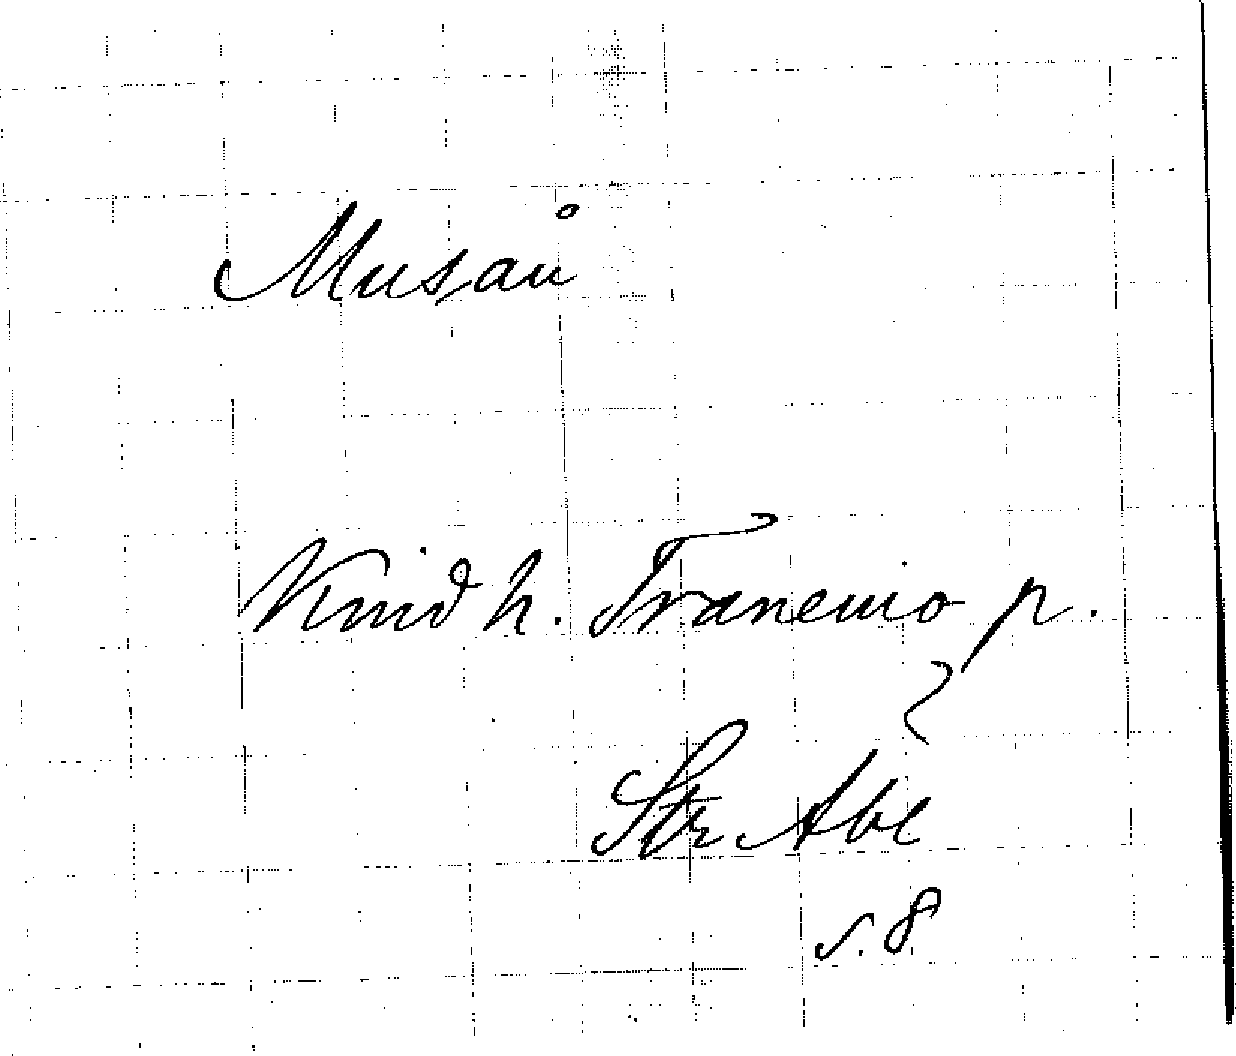 Musaů
Kmid h. Tranemo p.
Str Abl
s. 8.